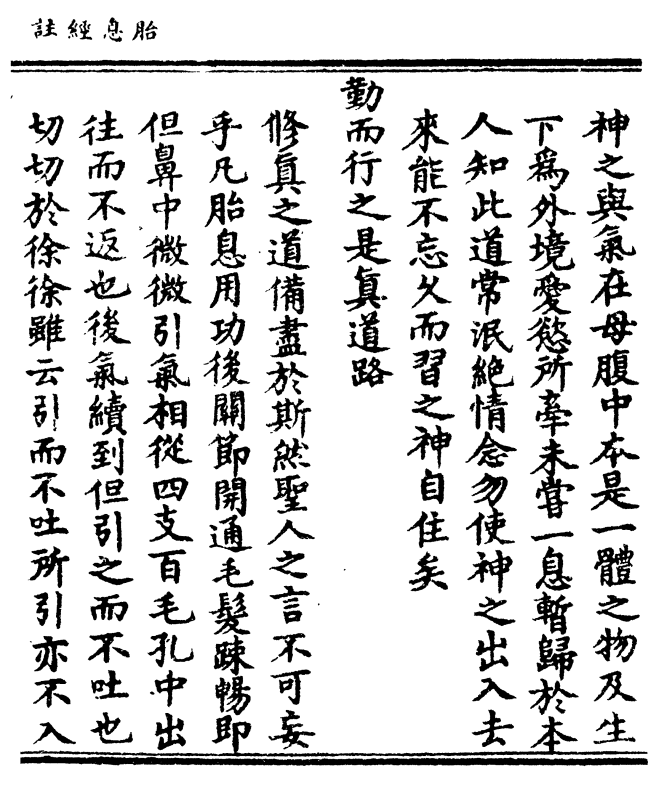 胎息經註
神之與氣在母腹中本是一體之物及生
下爲外境愛慾所牽未嘗一息暫歸於本
人知此道常泯絶情念勿使神之出入去
來能不忘久而習之神自住矣
勤而行之是眞道路
脩眞之道備盡於斯然聖人之言不可妄
乎凡胎息用功後關節開通毛髮踈暢即
但鼻中微微引氣相從四支百毛孔中出
往而不返也後氣續到但引之而不吐也
切切於徐徐雖云引而不吐所引亦不入